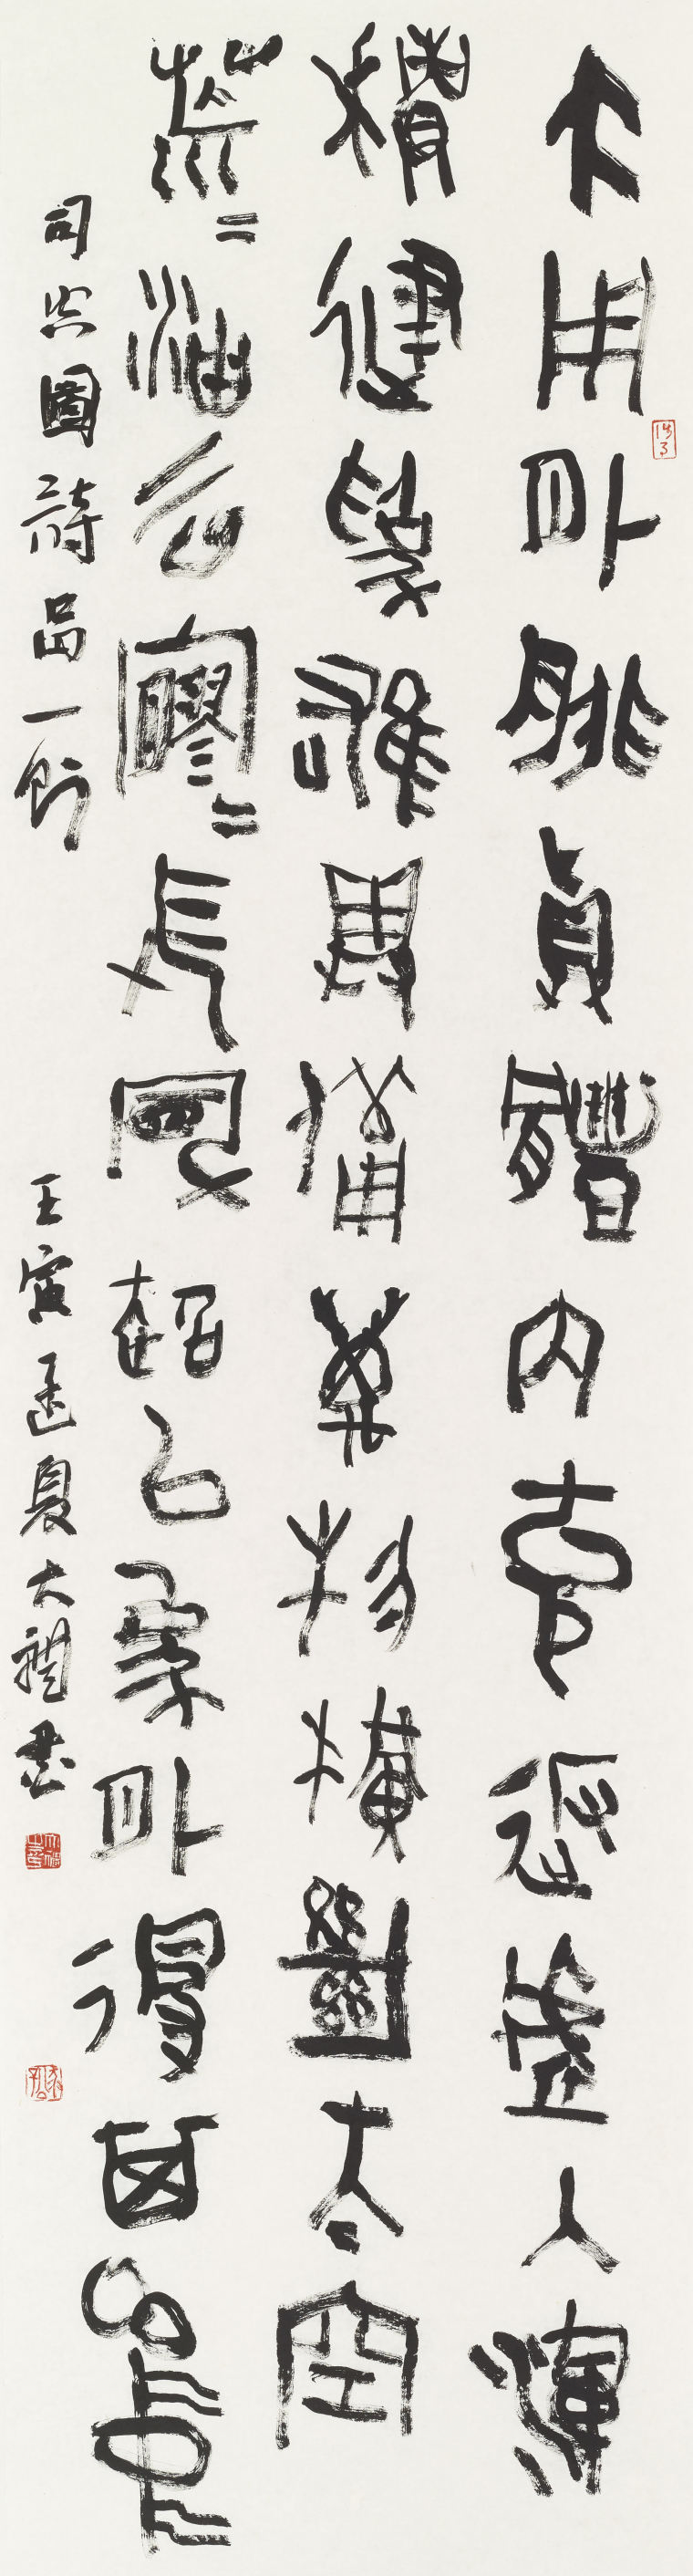 大用外腓真體内充返虛入渾
積健為雄具備萬物橫絕太空
荒=油云寥=長風超以象外得其環中
司空圖詩品一則 壬寅孟夏大禮書